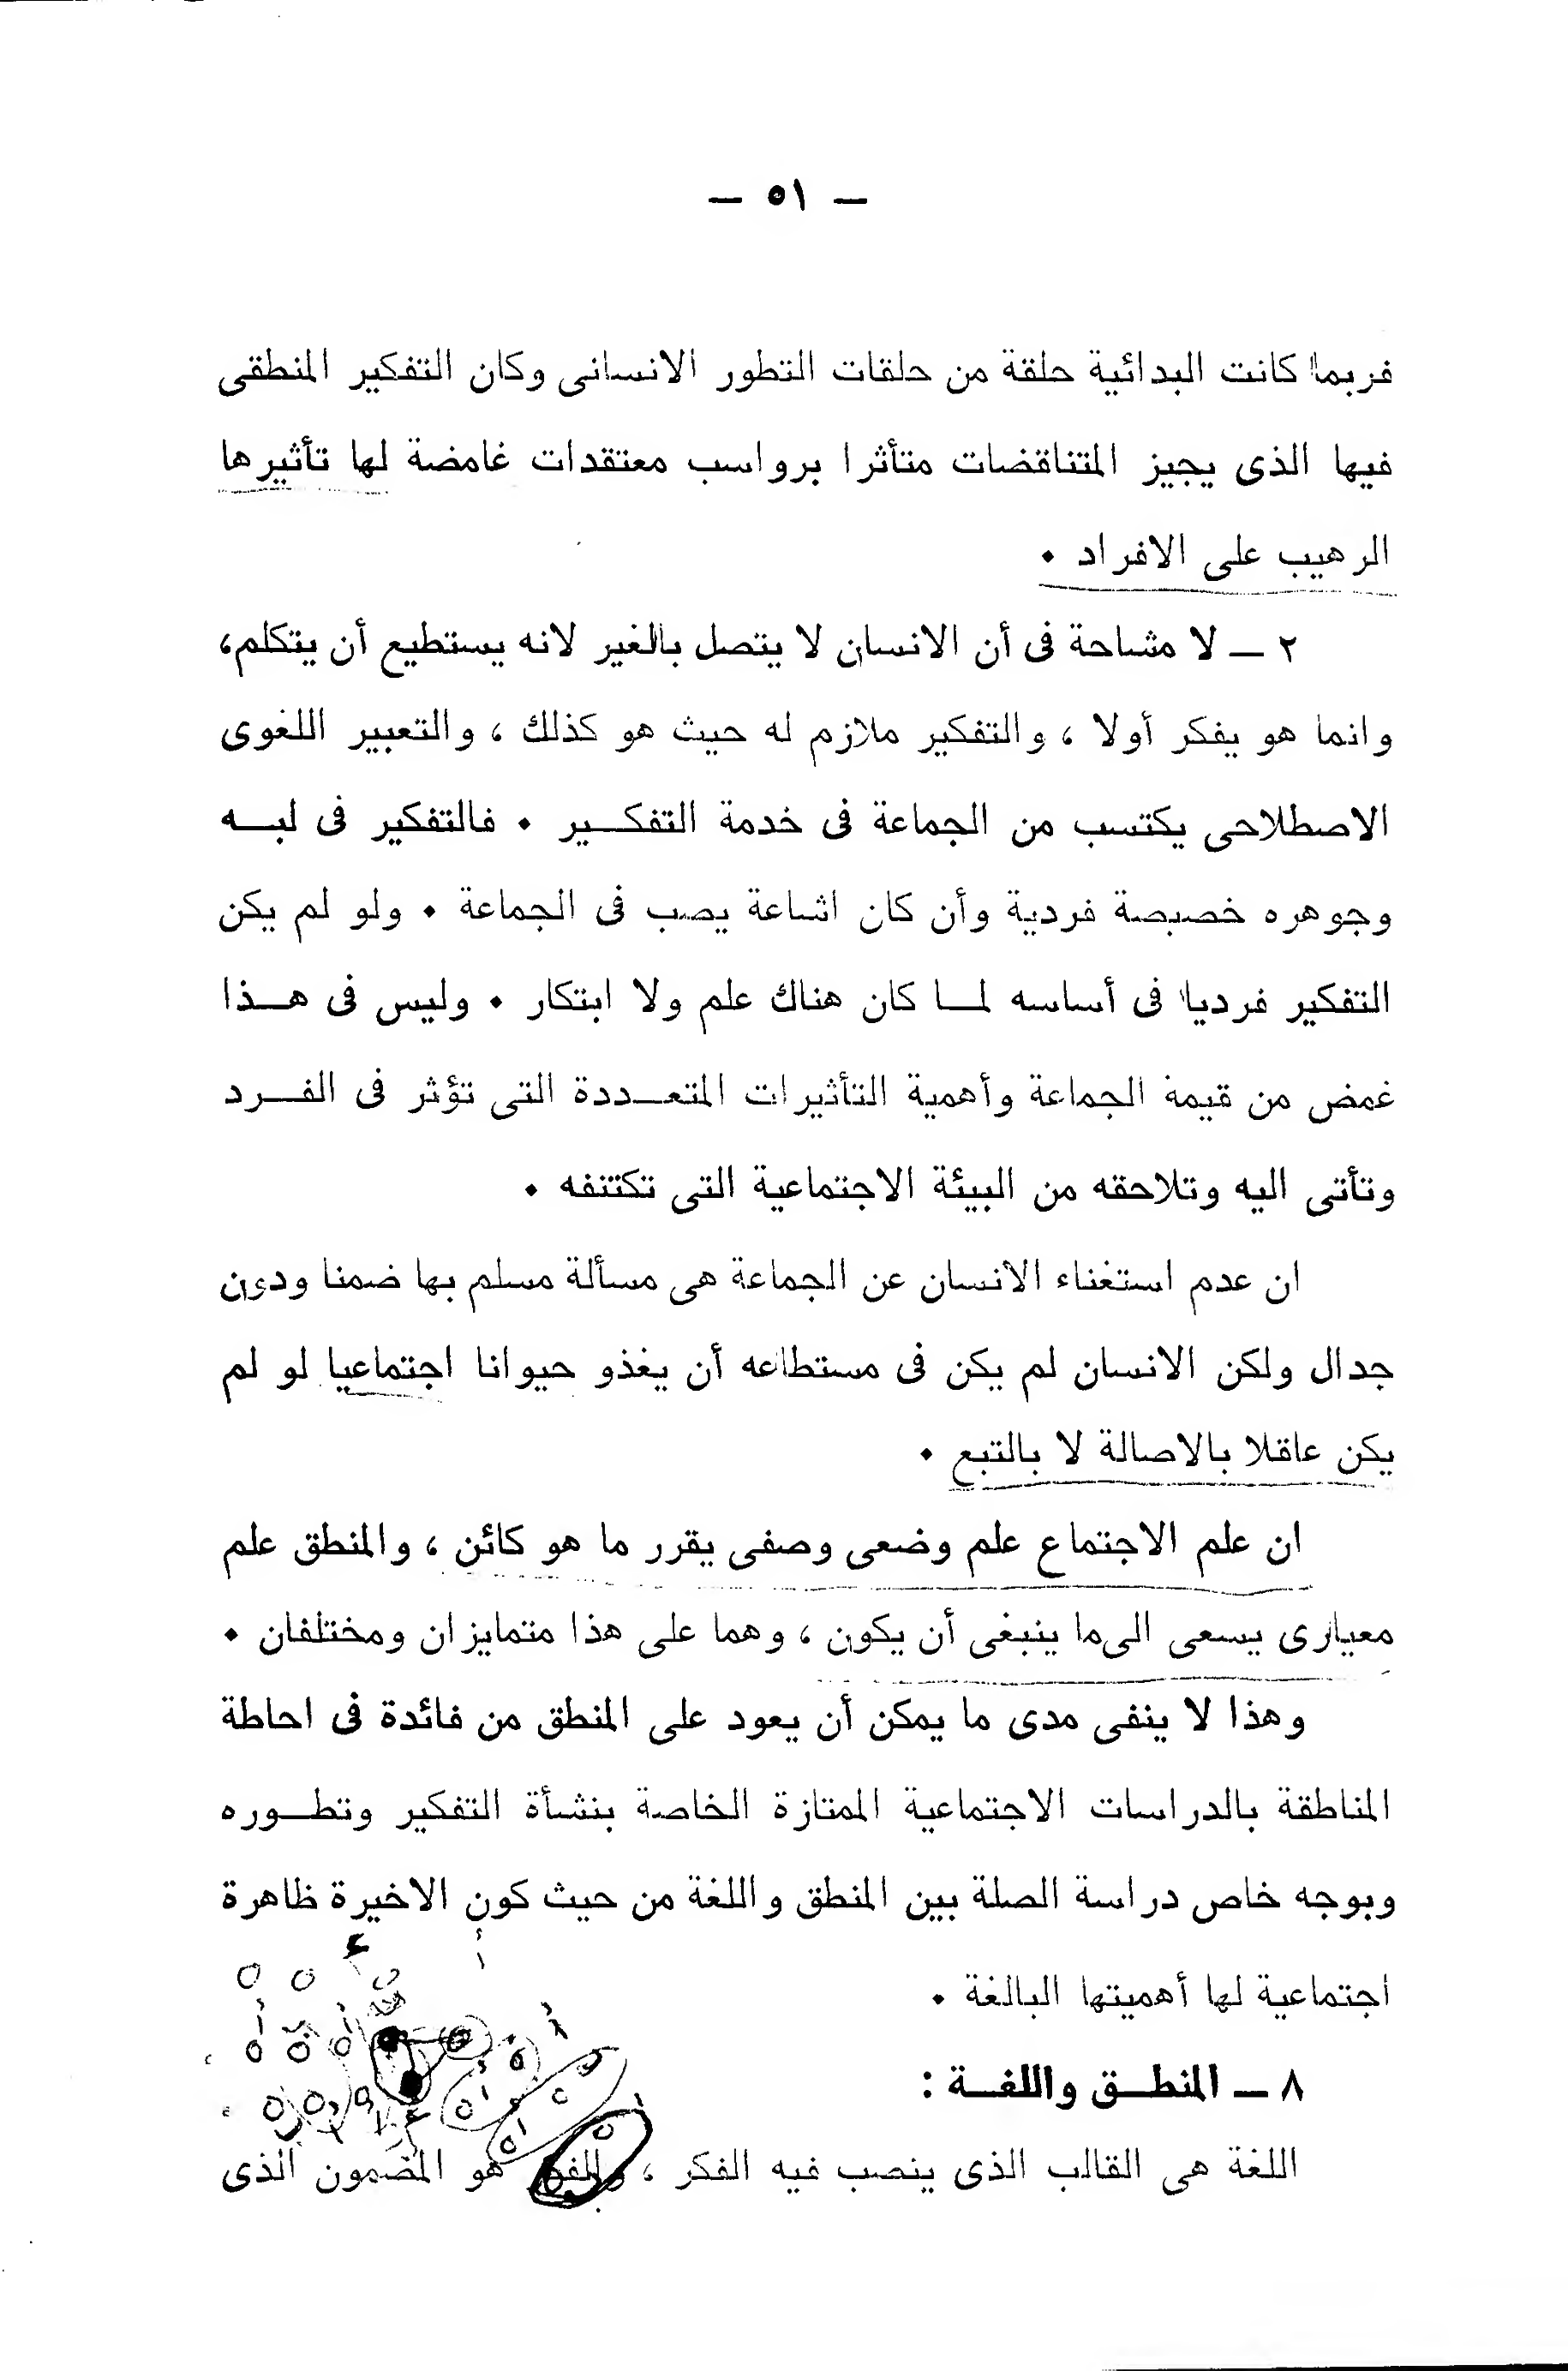 — ٥١ —
فربما كانت البدائية حلقة من حلقات التطور الانسانى وكان التفكير المنطقى
فيها الذى يجيز المتناقضات متأثرا برواسب معتقدات غامضة لها تأثيرها
الرهيب على الافراد ٠
٢ — لا مشاحة فى أن الانسان لا يتصل بالغير لانه يستطيع أن يتكلم،
وانما هو يفكر أولا ، والتفكير ملازم له حيث هو كذلك ، والتعبير اللغوى
الاصطلاحى يكتسب من الجماعة فى خدمة التفكـــير ٠ فالتفكير فى لبـــه
وجوهره خصيصة فردية وأن كان اشاعة يصب فى الجماعة ٠ ولو لم يكن
التفكير فرديا فى أساسه لمـــا كان هناك علم ولا ابتكار ٠ وليس فى هـــذا
غمض من قيمة الجماعة وأهمية التأثيرات المتعـــددة التى تؤثر فى الفـــرد
وتأتى اليه وتلاحقه من البيئة الاجتماعية التى تكتنفه ٠
ان عدم استغناء الانسان عن الجماعة هى مسألة مسلم بها ضمنا ودون
جدال ولكن الانسان لم يكن فى مستطاعه أن يغذو حيوانا اجتماعيا لو لم
يكن عاقلا بالاصالة لا بالتبع ٠
ان علم الاجتماع علم وضعى وصفى يقرر ما هو كائن ، والمنطق علم
معيارى يسعى الى ما ينبغى أن يكون ، وهما على هذا متمايزان ومختلفان ٠
وهذا لا ينفى مدى ما يمكن أن يعود على المنطق من فائدة فى احاطة
المناطقة بالدراسات الاجتماعية الممتازة الخاصة بنشأة التفكير وتطـــوره
وبوجه خاص دراسة الصلة بين المنطق واللغة من حيث كون الاخيرة ظاهرة
اجتماعية لها أهميتها البالغة ٠
٨ — المنطـــق واللغـــة :
اللغة هى القالب الذى ينصب فيه الفكر ، هو المضمون الذى